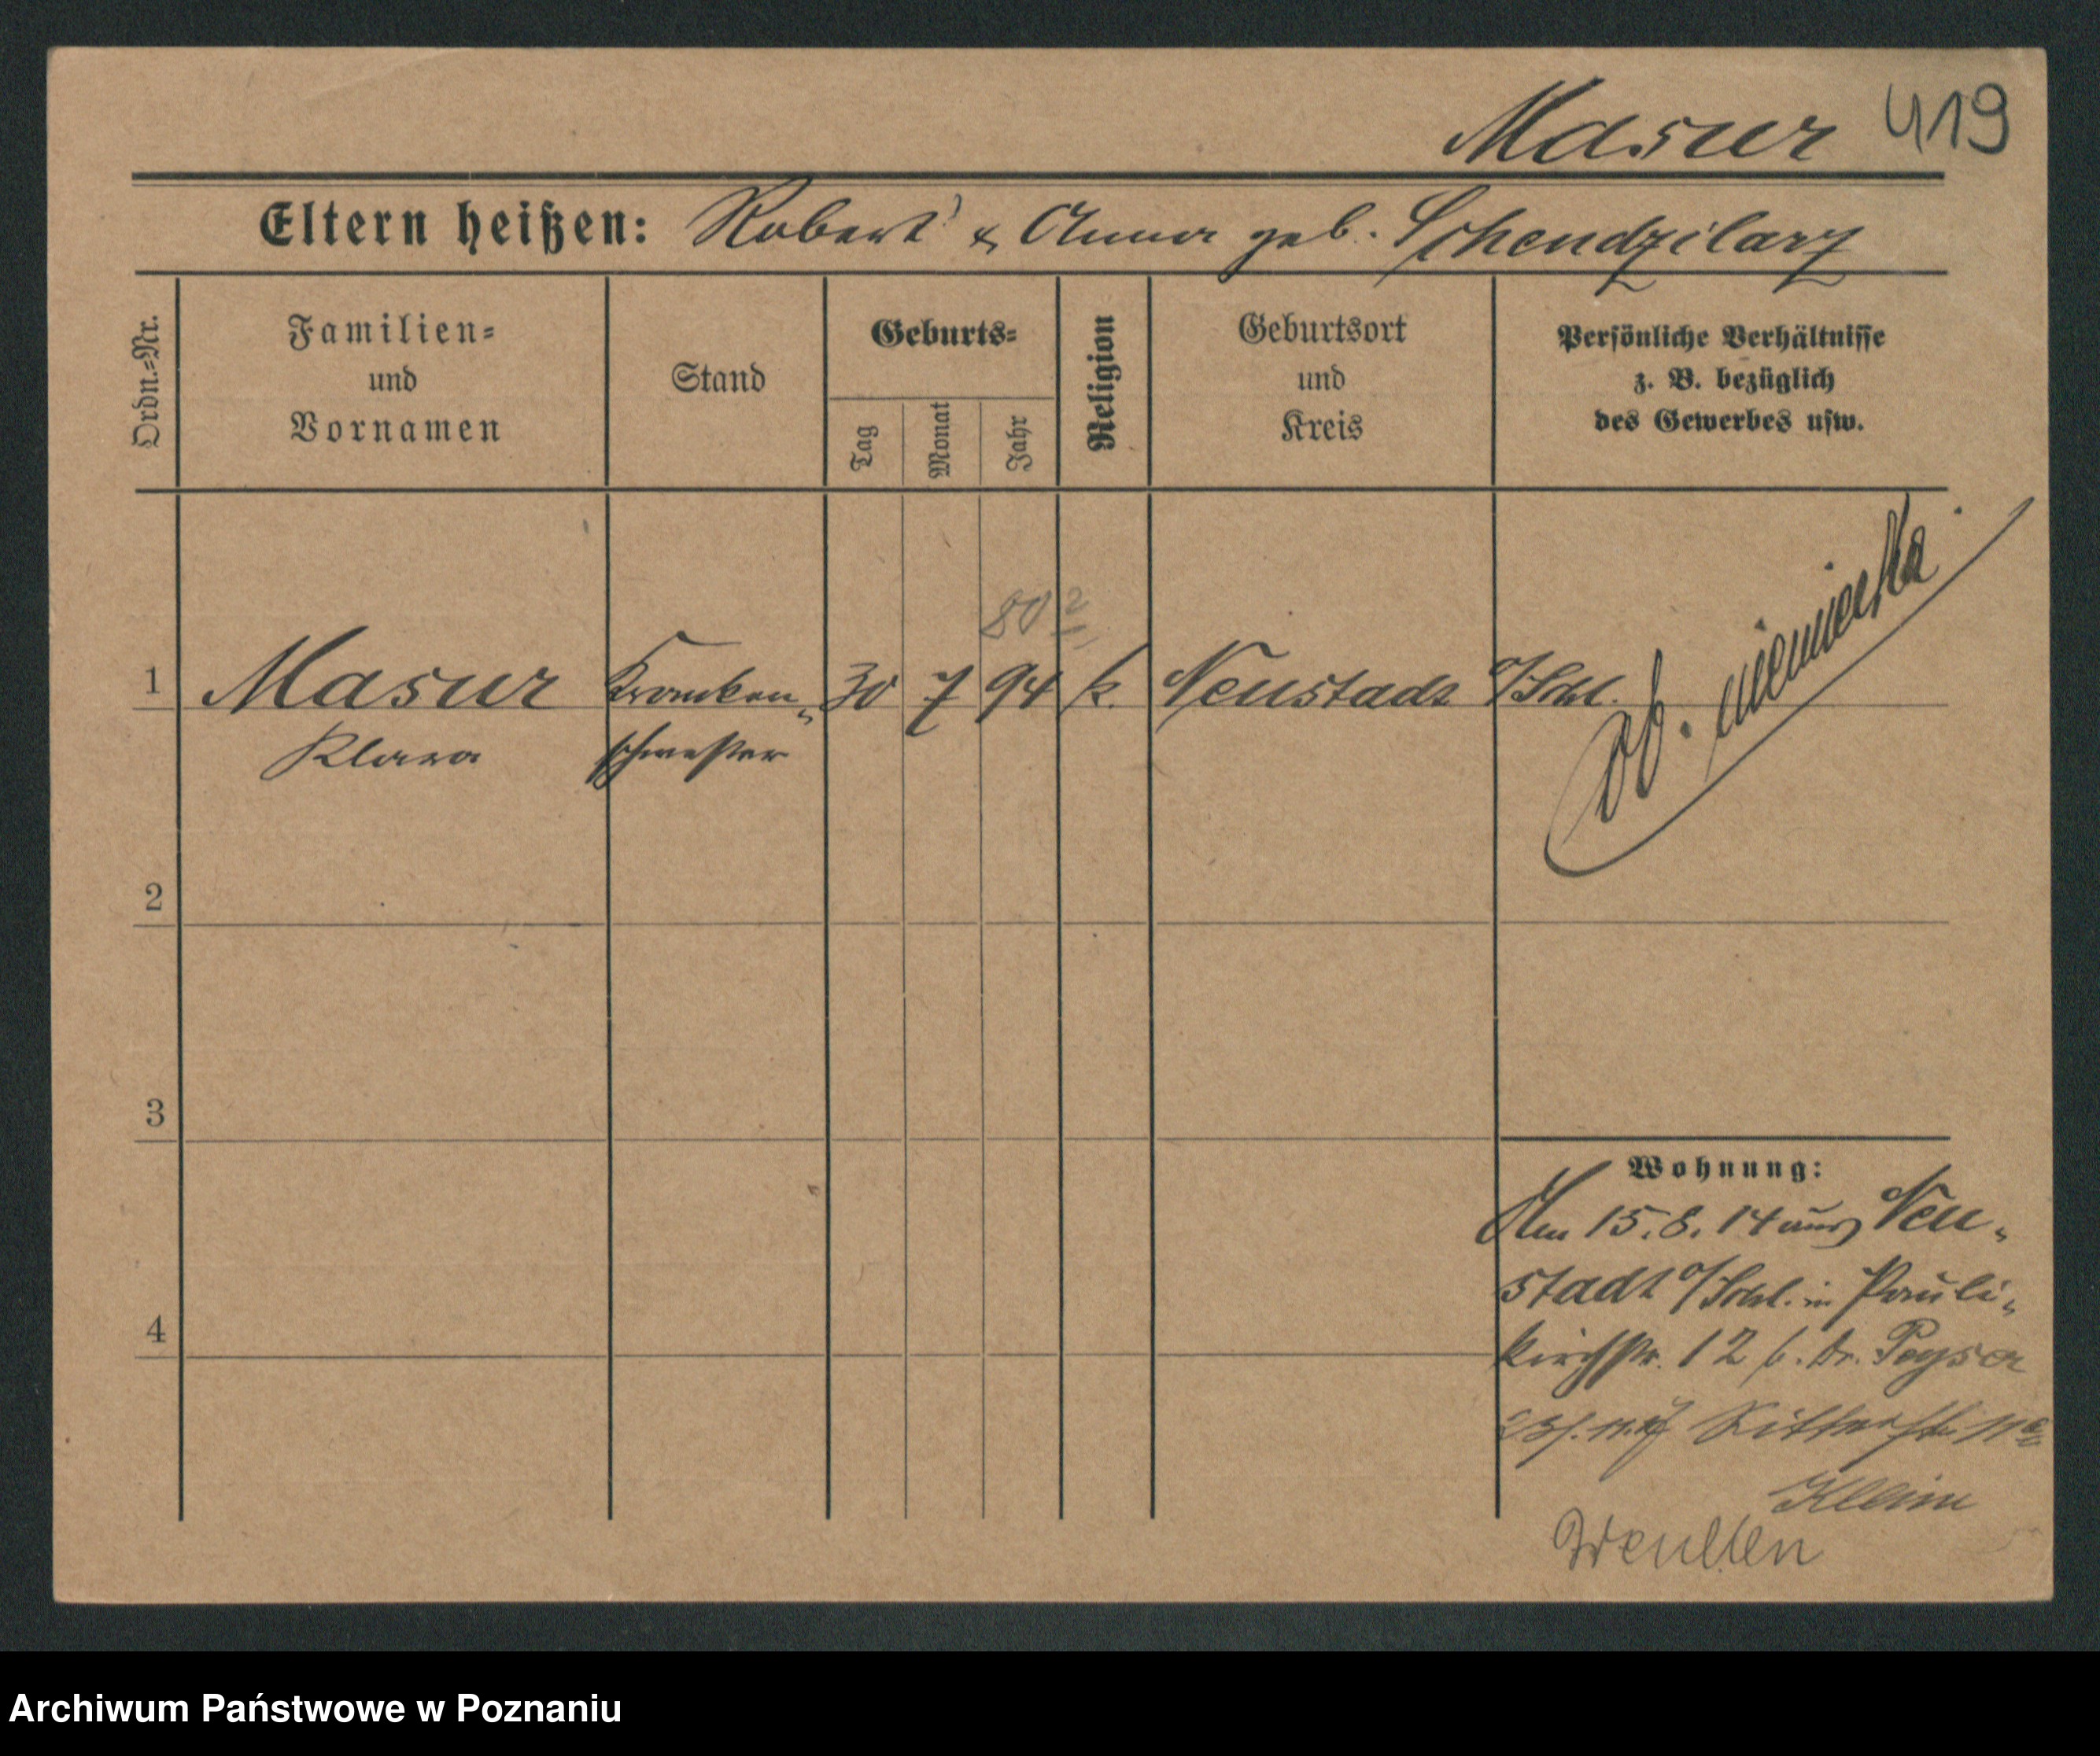 Masur 419
Eltern heißen: Robert & Anna geb. Schendzilarz
Ordn.-Nr.
Familien-
und
Vornamen
Stand
Geburts-
Tag
Monat
Jahr
Religion
Geburtsort
und
Kreis
Persönliche Verhältnisse
z. B. bezüglich
des Gewerbes usw.
80?
1 Masur Kranken- 30 7 94 k. Neustadt O/Schl.
Klara schwester
Ob. niemiecka
2
3
4
Wohnung:
Am 15.8.14 aus Neu-
stadt O/Schl. in Pauli-
kirchstr. 12 b. Dr. Peyser
Ritterstr. 11a
Klein
Archiwum Państwowe w Poznaniu